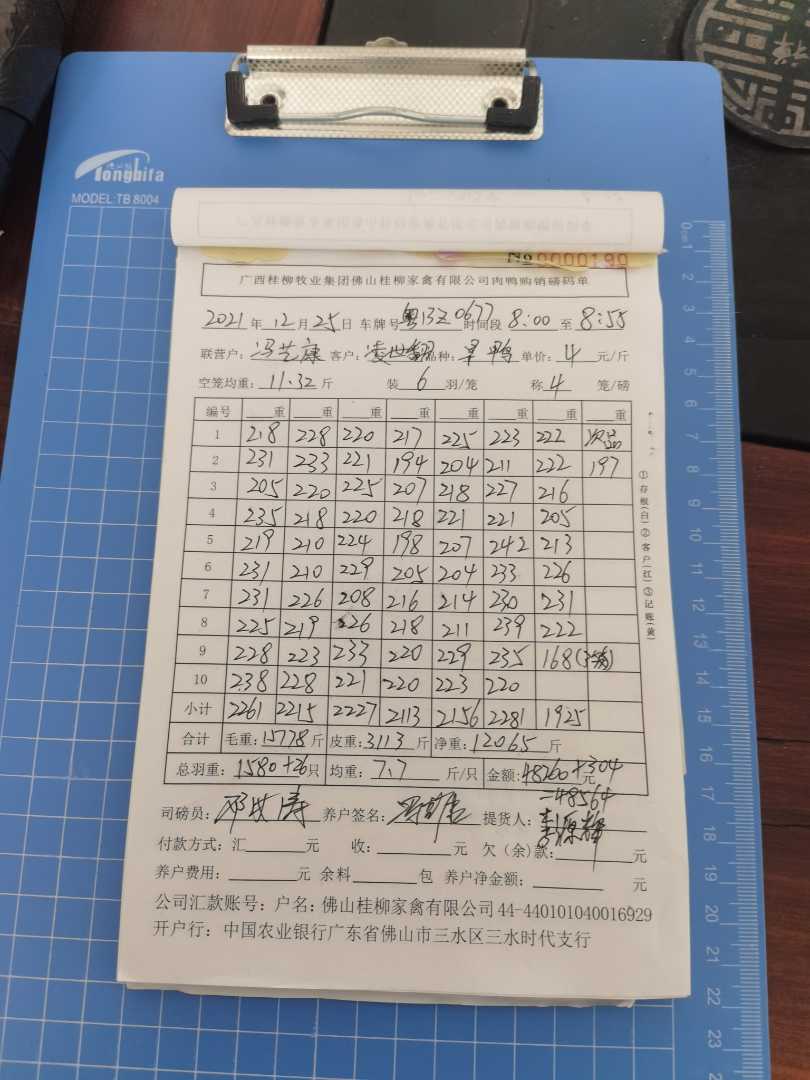 Tongbifa
MODEL:TB 8004
No 0000199
广西桂柳牧业集团佛山桂柳家禽有限公司肉鸭购销磅码单
2021年12月25日 车牌号 粤13Z0677 时间段 8:00 至 8:55
联营户: 冯芝康 客户: 凌世翻 品种: 旱鸭 单价: 4 元/斤
空笼均重: 11.32 斤 装 6 羽/笼 称 4 笼/磅
编号 重 重 重 重 重 重 重 重
1 218 228 220 217 225 223 222 次品
2 231 233 221 194 204 211 222 197
3 205 220 225 207 218 227 216
4 235 218 220 218 221 221 205
5 219 210 224 198 207 242 213
6 231 210 229 205 204 233 226
7 231 226 208 216 214 230 231
8 225 219 226 218 211 239 222
9 228 223 233 220 229 235 168
10 238 228 221 220 223 220
小计 2261 2215 2227 2113 2156 2281 1925
合计 毛重: 15778 斤 皮重: 3113 斤 净重: 12065 斤
总羽重: 1580+26 只 均重: 7.7 斤/只 金额: 48260+304 元
=48564
司磅员: 邓牧涛 养户签名: 提货人:
付款方式: 汇 元 收: 元 欠(余)款: 元
养户费用: 元 余料 包 养户净金额: 元
公司汇款账号: 户名: 佛山桂柳家禽有限公司 44-440101040016929
开户行: 中国农业银行广东省佛山市三水区三水时代支行
①存根(白)②客户(红)③记账(黄)
0cm1 2 3 4 5 6 7 8 9 10 11 12 13 14 15 16 17 18 19 20 21 22 23